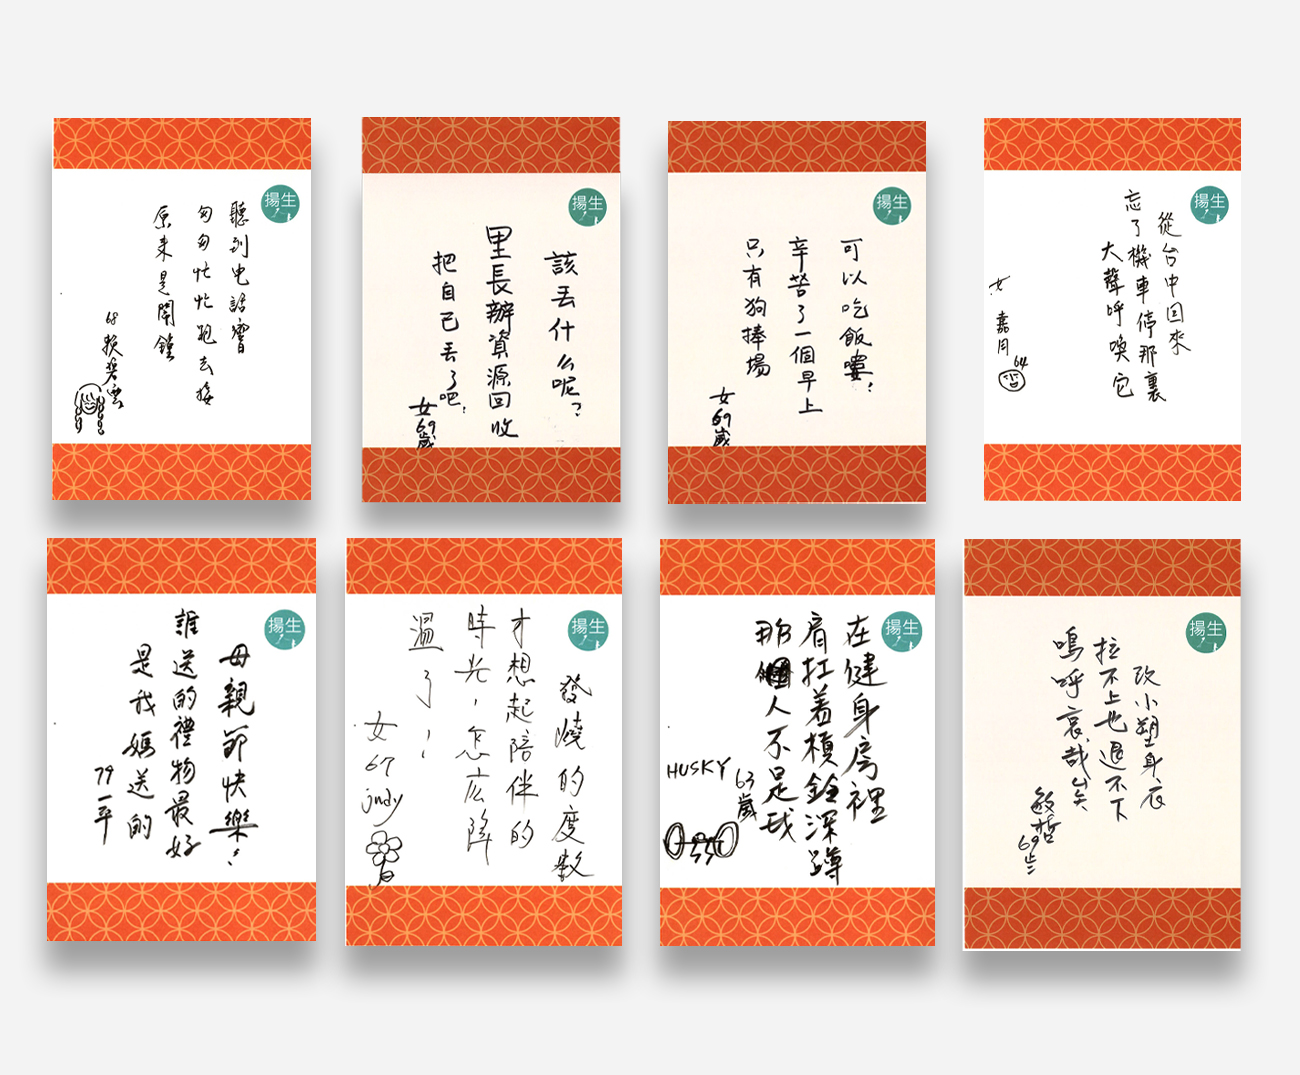 揚生
聽到电話響
匆匆忙忙跑去接
原来是鬧鐘
68
揚生
該丟什么呢?
里長辦資源回收
把自己丟了吧!
女69歲
揚生
可以吃飯嘍!
辛苦了一個早上
只有狗捧場
女69歲
揚生
從台中回來
忘了機車停那裏
大聲呼喚它
女 嘉月 64
揚生
母親節快樂!
誰送的禮物最好
是我媽送的
79
揚生
發燒的度數
才想起陪伴的
時光,怎広降
溫了!
女 67 judy
揚生
在健身房裡
肩扛着槓鈴深蹲
那個人不是我
63歲
HUSKY
揚生
改小塑身衣
拉不上也退不下
嗚呼哀哉
敏哲
69